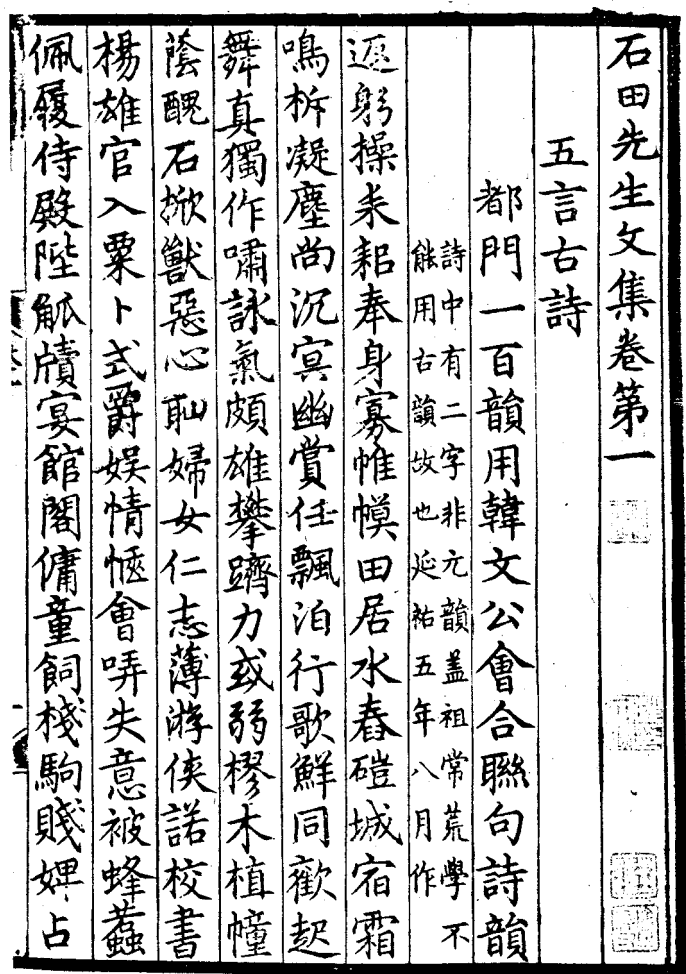 石田先生文集卷第一
五言古詩
都門一百韻用韓文公會合聯句詩韻
詩中有二字非元韻盖祖常荒學不
能用古韻故也延祐五年八月作
躬操耒耜奉身寡帷幙田居水舂磑城宿霜
鳴柝凝塵尚沉冥幽賞任飄泊行歌鮮同歡起
舞真獨作嘯詠氣頗雄攀躋力或弱樛木植幢
蔭醜石掀獸惡心耻婦女仁志薄游俠諾校書
楊雄官入粟卜式爵娱情愜會哢失意被蜂蠚
佩履侍殿陛觚牘宴館閣傭童飼棧駒賤婢占